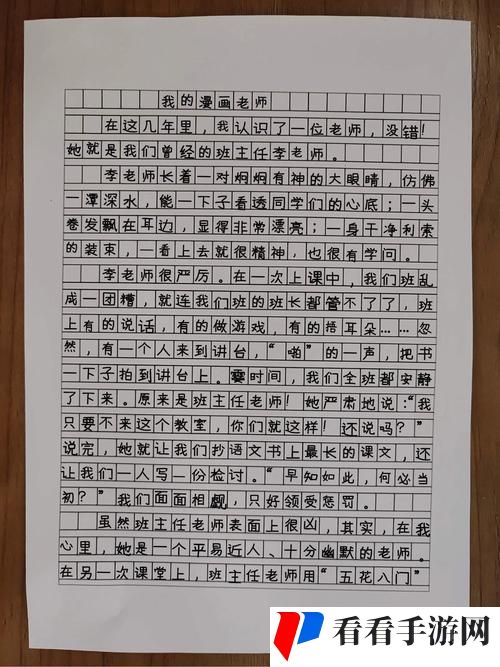 我的漫画老师
在这几年里，我认识了一位老师，没错！
她就是我们曾经的班主任李老师。
李老师长着一对炯炯有神的大眼睛，仿佛
一潭深水，能一下子看透同学们的心底；一头
卷发飘在耳边，显得非常漂亮；一身干净利索
的装束，一看上去就很精神，也很有学问。
李老师很严厉。在一次上课中，我们班乱
成一团糟，就连我们班的班长都管不了了，班
上有的说话，有的做游戏，有的捂耳朵……忽
然，有一个人来到讲台，“啪”的一声，把书
一下子拍到讲台上。霎时间，我们全班都安静
了下来。原来是班主任老师！她严肃地说：“我
只要不来这个教室，你们就这样！还说吗？”
说完，她就让我们抄语文书上最长的课文，还
让我们一人写一份检讨。“早知如此，何必当
初？”我们面面相觑，只好领受惩罚。
虽然班主任老师表面上很凶，其实，在我
心里，她是一个平易近人、十分幽默的老师。
在另一次课堂上，班主任老师用“五花八门”
看看手游网